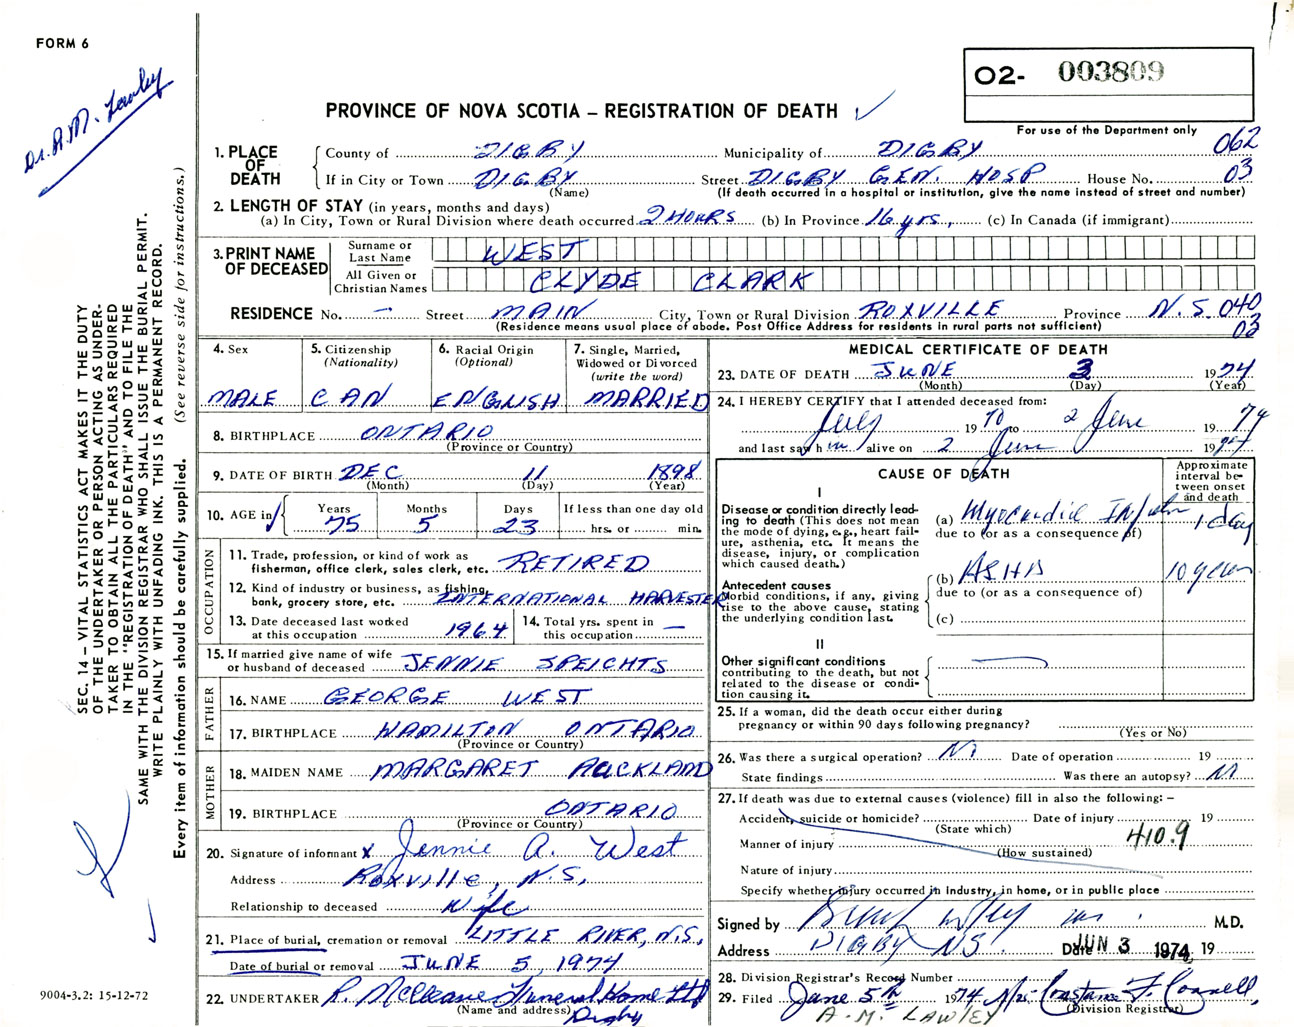 FORM 6
Dr. A.M. Lawley
02- 003809
PROVINCE OF NOVA SCOTIA – REGISTRATION OF DEATH
For use of the Department only
062
03
SEC. 14 – VITAL STATISTICS ACT MAKES IT THE DUTY
OF THE UNDERTAKER OR PERSON ACTING AS UNDER-
TAKER TO OBTAIN ALL THE PARTICULARS REQUIRED
IN THE "REGISTRATION OF DEATH" AND TO FILE THE
SAME WITH THE DIVISION REGISTRAR WHO SHALL ISSUE THE BURIAL PERMIT.
WRITE PLAINLY WITH UNFADING INK. THIS IS A PERMANENT RECORD.
Every item of information should be carefully supplied. (See reverse side for instructions.)
1. PLACE OF DEATH
County of DIGBY Municipality of DIGBY
If in City or Town DIGBY Street DIGBY GEN. HOSP House No.
(Name) (If death occurred in a hospital or institution, give the name instead of street and number)
2. LENGTH OF STAY (in years, months and days)
(a) In City, Town or Rural Division where death occurred 2 HOURS (b) In Province 16 yrs, (c) In Canada (if immigrant)
3. PRINT NAME OF DECEASED
Surname or Last Name WEST
All Given or Christian Names CLYDE CLARK
RESIDENCE No. — Street MAIN City, Town or Rural Division ROXVILLE Province N.S. 040
03
(Residence means usual place of abode. Post Office Address for residents in rural parts not sufficient)
4. Sex
MALE
5. Citizenship
(Nationality)
CAN
6. Racial Origin
(Optional)
ENGLISH
7. Single, Married,
Widowed or Divorced
(write the word)
MARRIED
8. BIRTHPLACE ONTARIO
(Province or Country)
9. DATE OF BIRTH DEC 11 1898
(Month) (Day) (Year)
10. AGE in
Years Months Days If less than one day old
75 5 23 hrs. or min.
OCCUPATION
11. Trade, profession, or kind of work as
fisherman, office clerk, sales clerk, etc. RETIRED
12. Kind of industry or business, as fishing,
bank, grocery store, etc. INTERNATIONAL HARVESTER
13. Date deceased last worked
at this occupation 1964
14. Total yrs. spent in
this occupation —
15. If married give name of wife
or husband of deceased JENNIE SPEICHTS
FATHER
16. NAME GEORGE WEST
17. BIRTHPLACE HAMILTON ONTARIO
(Province or Country)
MOTHER
18. MAIDEN NAME MARGARET AUCKLAND
19. BIRTHPLACE ONTARIO
(Province or Country)
20. Signature of informant X Jennie A. West
Address Roxville, N.S,
Relationship to deceased Wife
21. Place of burial, cremation or removal LITTLE RIVER, N.S,
Date of burial or removal JUNE 5, 1974
22. UNDERTAKER R. McCleave Funeral Home Ltd
(Name and address) Digby
9004-3.2: 15-12-72
MEDICAL CERTIFICATE OF DEATH
23. DATE OF DEATH JUNE 3 1974
(Month) (Day) (Year)
24. I HEREBY CERTIFY that I attended deceased from:
July 1970 2 June 1974
and last saw him alive on 2 June 1974
CAUSE OF DEATH
Approximate
interval be-
tween onset
and death
I
Disease or condition directly lead-
ing to death (This does not mean
the mode of dying, e.g., heart fail-
ure, asthenia, etc. It means the
disease, injury, or complication
which caused death.)
(a) Myocardial 1 day
due to (or as a consequence of)
Antecedent causes
Morbid conditions, if any, giving
rise to the above cause, stating
the underlying condition last.
(b) ASHD 10 years
due to (or as a consequence of)
(c)
II
Other significant conditions
contributing to the death, but not
related to the disease or condi-
tion causing it.
25. If a woman, did the death occur either during
pregnancy or within 90 days following pregnancy?
(Yes or No)
26. Was there a surgical operation? Date of operation 19
State findings Was there an autopsy?
27. If death was due to external causes (violence) fill in also the following: –
Accident, suicide or homicide? Date of injury 19
(State which)
Manner of injury 410.9
(How sustained)
Nature of injury
Specify whether injury occurred in industry, in home, or in public place
Signed by M.D.
Address DIGBY NS Date JUN 3 1974 19
28. Division Registrar's Record Number
29. Filed June 5th 1974 Mrs. Constance F. Connell,
(Division Registrar)
A.M. LAWLEY